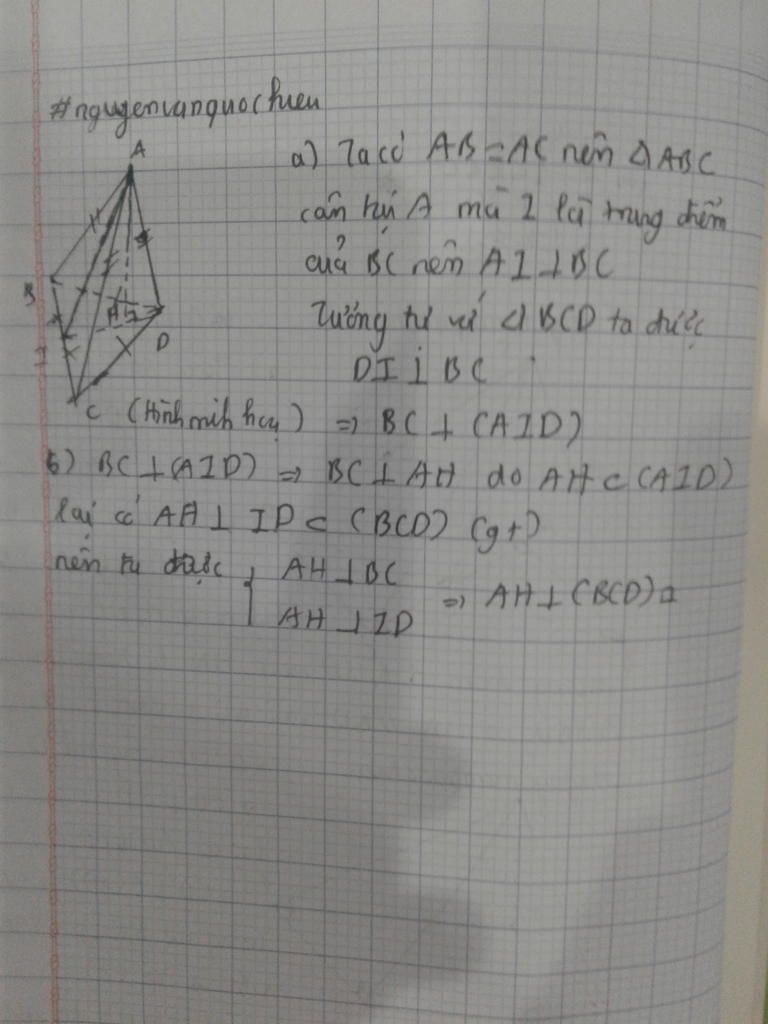 #nguyenvanquochieu
A
B
I
C
D
H
a) Ta có AB = AC nên △ABC
cân tại A mà I là trung điểm
của BC nên AI ⊥ BC
Tương tự với △BCD ta được
DI ⊥ BC
(Hình minh họa) ⇒ BC ⊥ (AID)
b) BC ⊥ (AID) ⇒ BC ⊥ AH do AH ⊂ (AID)
lại có AH ⊥ ID ⊂ (BCD) (gt)
nên ta được { AH ⊥ BC
AH ⊥ ID ⇒ AH ⊥ (BCD) □